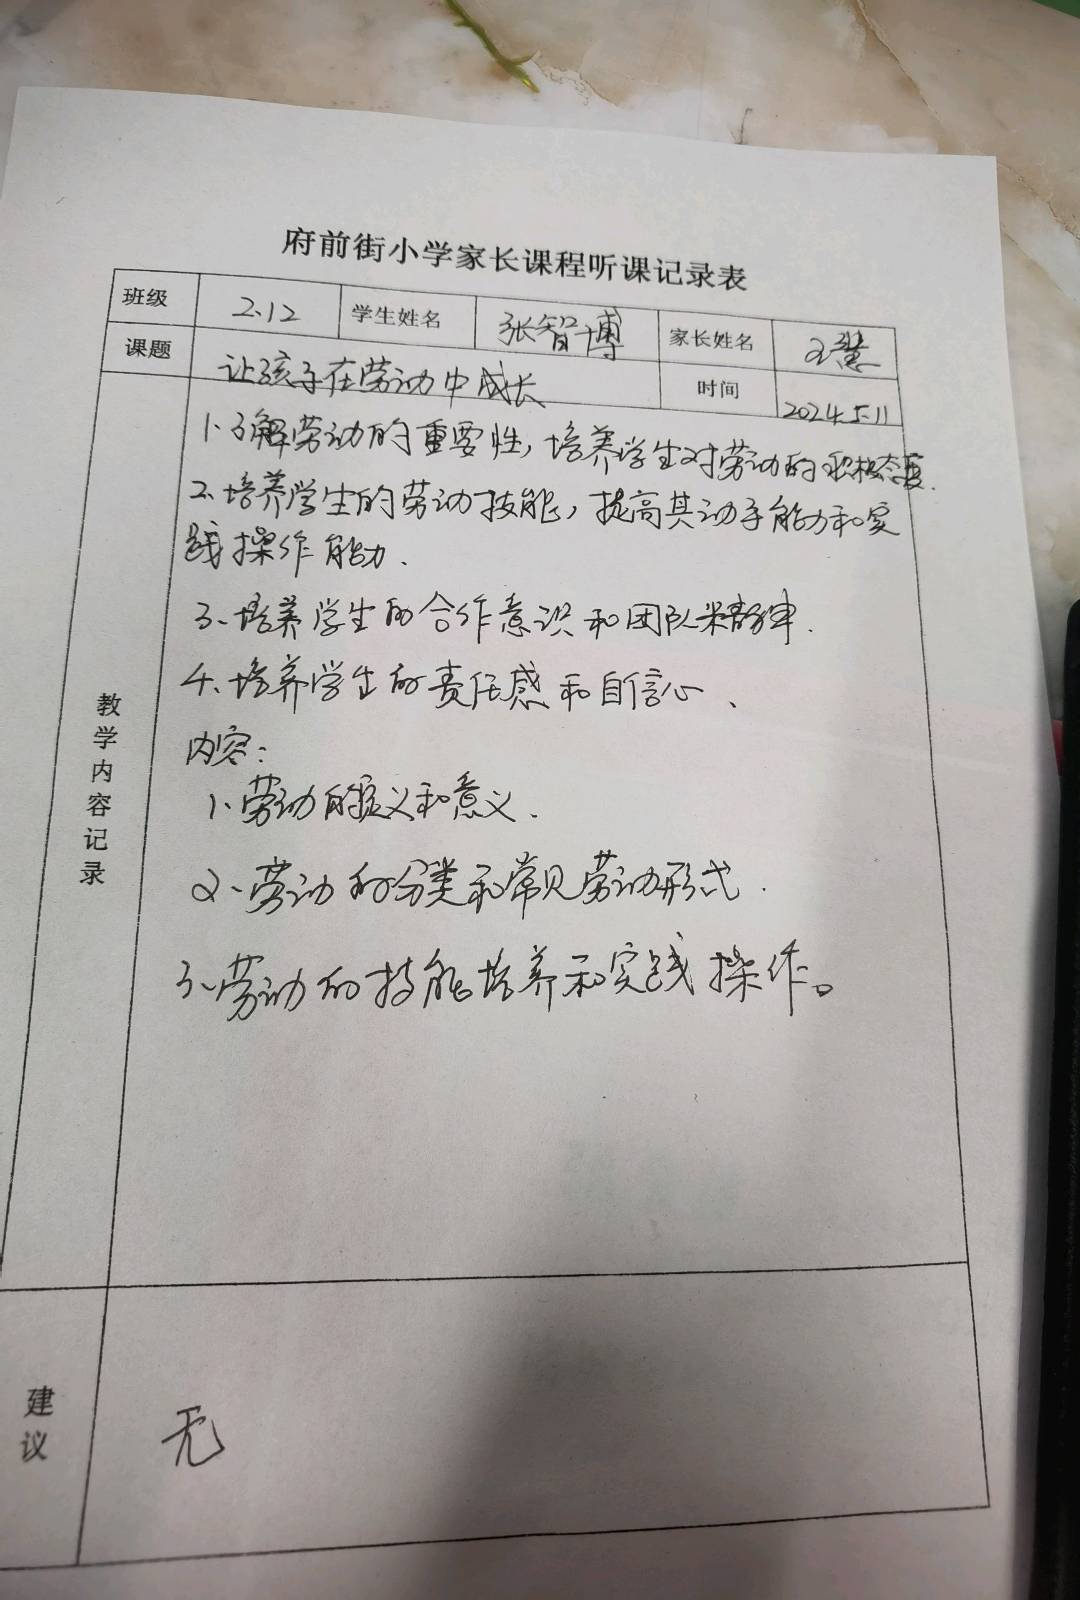 府前街小学家长课程听课记录表
班级 2.12 学生姓名 张智博 家长姓名 王慧
课题 让孩子在劳动中成长 时间 2024.5.11
1.了解劳动的重要性,培养学生对劳动的积极态度.
2.培养学生的劳动技能,提高其动手能力和实
践操作能力.
3、培养学生的合作意识和团队精神.
4.培养学生的责任感和自信心、
内容:
1、劳动的定义和意义.
2、劳动的分类和常见劳动形式.
3、劳动的技能培养和实践操作。
教学内容记录
建议
无